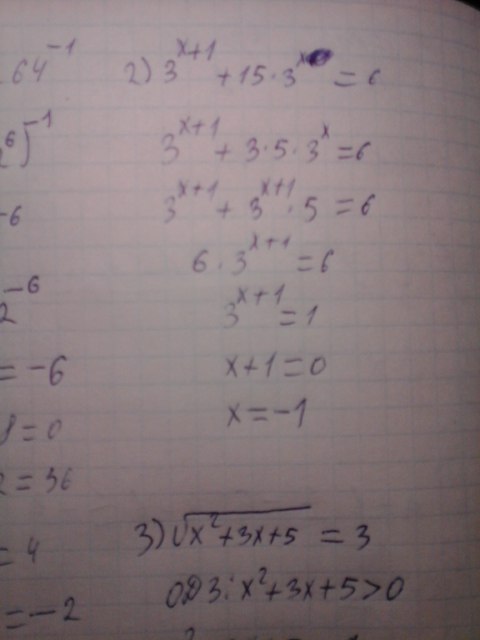 64⁻¹
⁶)⁻¹
-6
2⁻⁶
= -6
8 = 0
2 = 36
= 4
= -2
2) 3ˣ⁺¹ + 15 · 3ˣ = 6
3ˣ⁺¹ + 3 · 5 · 3ˣ = 6
3ˣ⁺¹ + 3ˣ⁺¹ · 5 = 6
6 · 3ˣ⁺¹ = 6
3ˣ⁺¹ = 1
x + 1 = 0
x = -1
3) √(x² + 3x + 5) = 3
ОДЗ: x² + 3x + 5 > 0